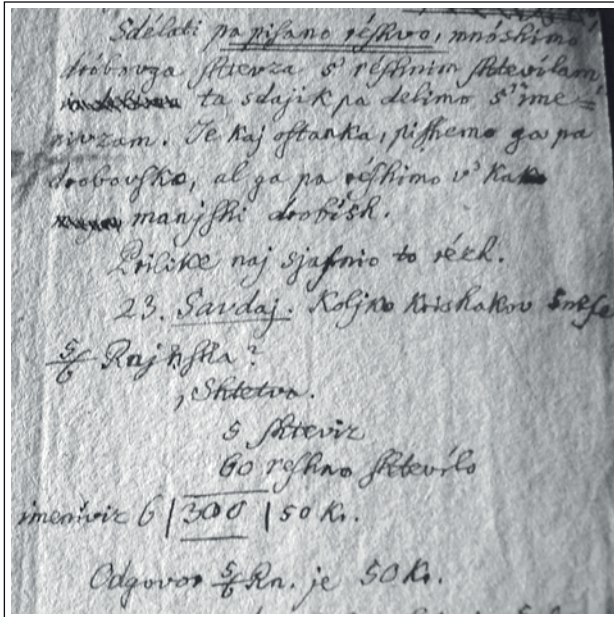 Sdélati pa pisano réshvo, mnóshimo
dróbovga shtevza s' réshnim shtevílam,
ta sdajik pa delimo s' ime=
nivzam. Je kaj ostanka, pishemo ga pa
drobovsko, al ga pa réshimo v' kak
manjshi drobish.
Prilike naj sjasnio to rézh.
23. Savdaj. Koljko Krishakov snese
5/6 Rajnska?
Shtetva.
5 shteviz
60 reshno shtevílo
imeniviz 6 | 300 | 50 K.
Odgovor 5/6 Rn. je 50 K.